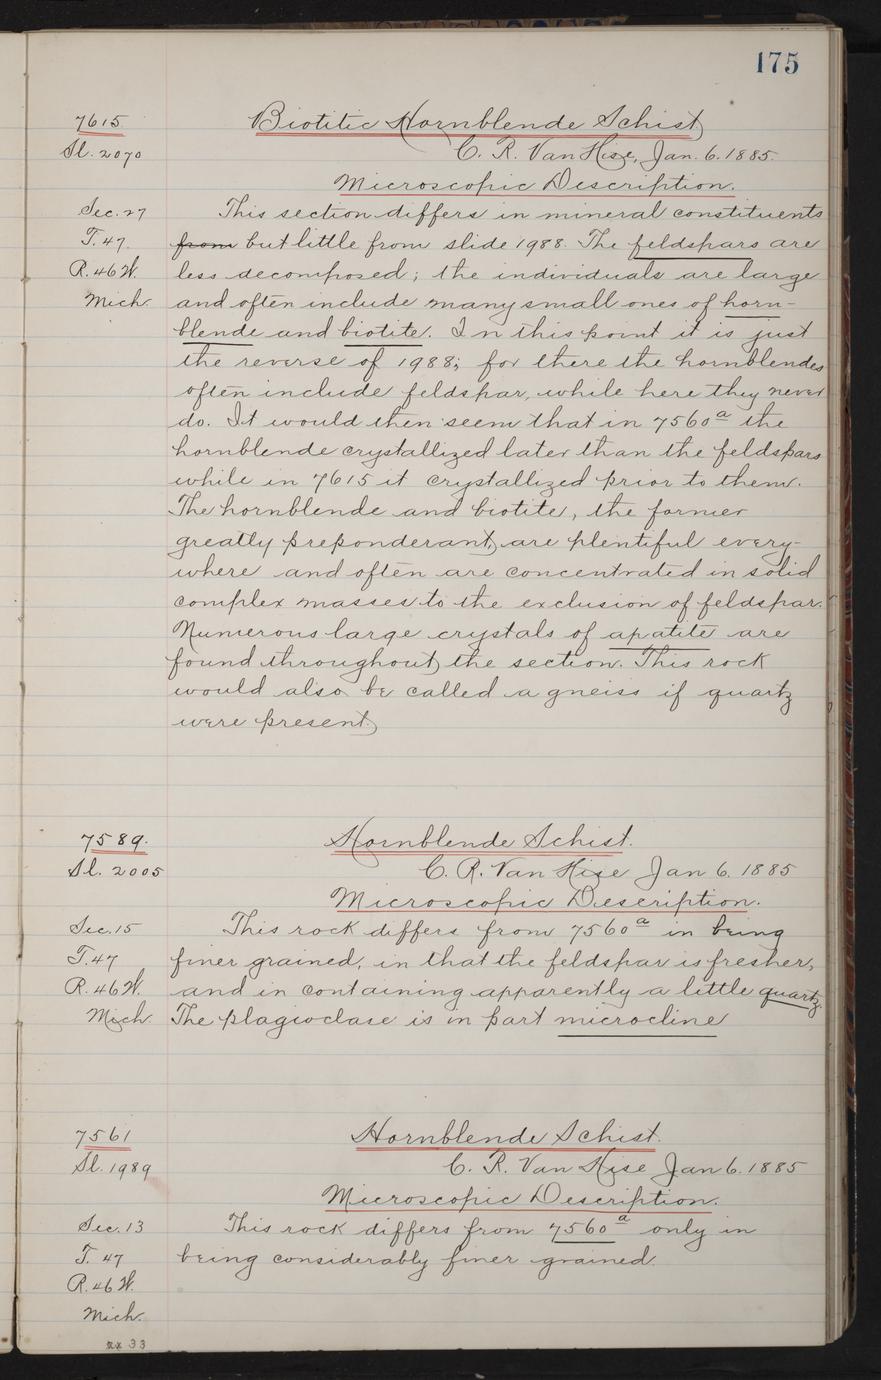 175
7615 Biotitic Hornblende Schist
Sl. 2070 C. R. Van Hise, Jan. 6. 1885.
Microscopic Description.
Sec. 27 This section differs in mineral constituents
T. 47. from but little from slide 1988. The feldspars are
R. 46 W. less decomposed; the individuals are large
Mich. and often include many small ones of horn-
blende and biotite. In this point it is just
the reverse of 1988; for there the hornblendes
often include feldspar, while here they never
do. It would then seem that in 7560a the
hornblende crystallized later than the feldspars
while in 7615 it crystallized prior to them.
The hornblende and biotite, the former
greatly preponderant, are plentiful every-
where and often are concentrated in solid
complex masses to the exclusion of feldspar.
Numerous large crystals of apatite are
found throughout the section. This rock
would also be called a gneiss if quartz
were present
7589. Hornblende Schist.
Sl. 2005 C. R. Van Hise Jan 6. 1885
Microscopic Description.
Sec. 15 This rock differs from 7560a in being
T. 47 finer grained, in that the feldspar is fresher,
R. 46 W. and in containing apparently a little quartz.
Mich. The plagioclase is in part microcline
7561 Hornblende Schist.
Sl. 1989 C. R. Van Hise Jan 6. 1885
Microscopic Description.
Sec. 13 This rock differs from 7560a only in
T. 47 being considerably finer grained.
R. 46 W.
Mich.
33